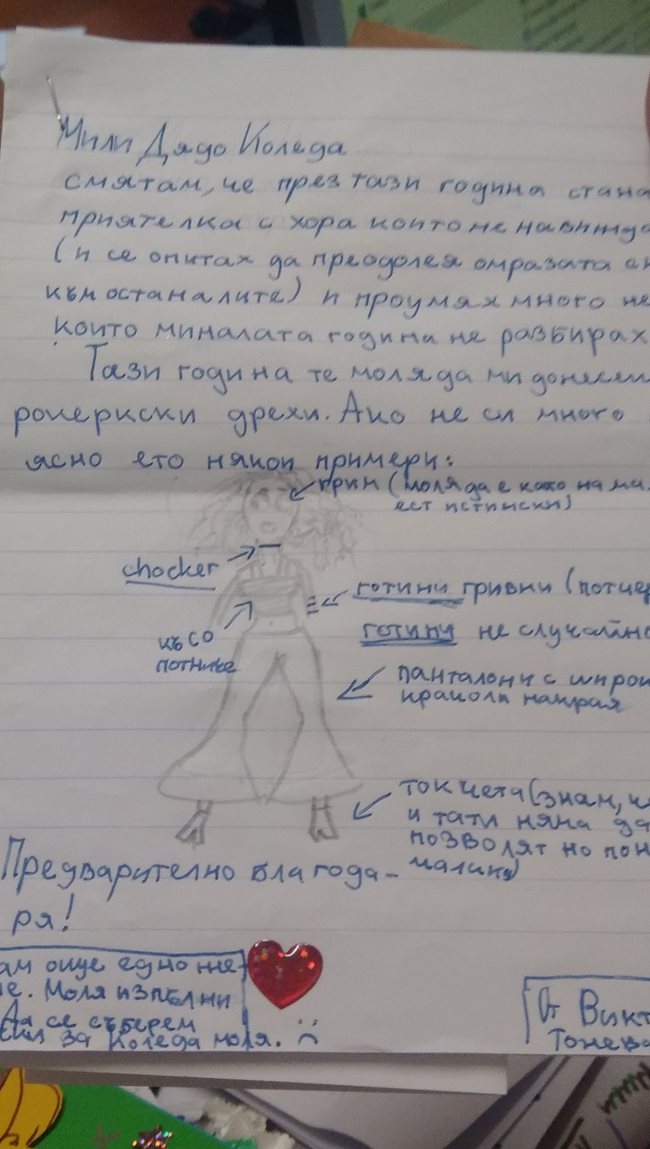 Мили Дядо Коледа
смятам, че през тази година стана
приятелка с хора които не навижда
(и се опитах да преодолея омразата си
към останалите) и проумях много не
които миналата година не разбирах
Тази година те моля да ми донесеш
рокериски дрехи. Ако не съм много
ясно ето някои примери:
(моля да е като на ма
ест истински)
chocker
готини гривни (потчер
късо
потниче
готини не случайно
панталони с широки
крачоли накрая
токчета (знам, че
и тати няма да
позволят но пон
малинки)
Предварително благода-
ря!
ам още едно же-
ие. Моля изпълни
Да се съберем
за Коледа моля. :(
От Викт
Тонева